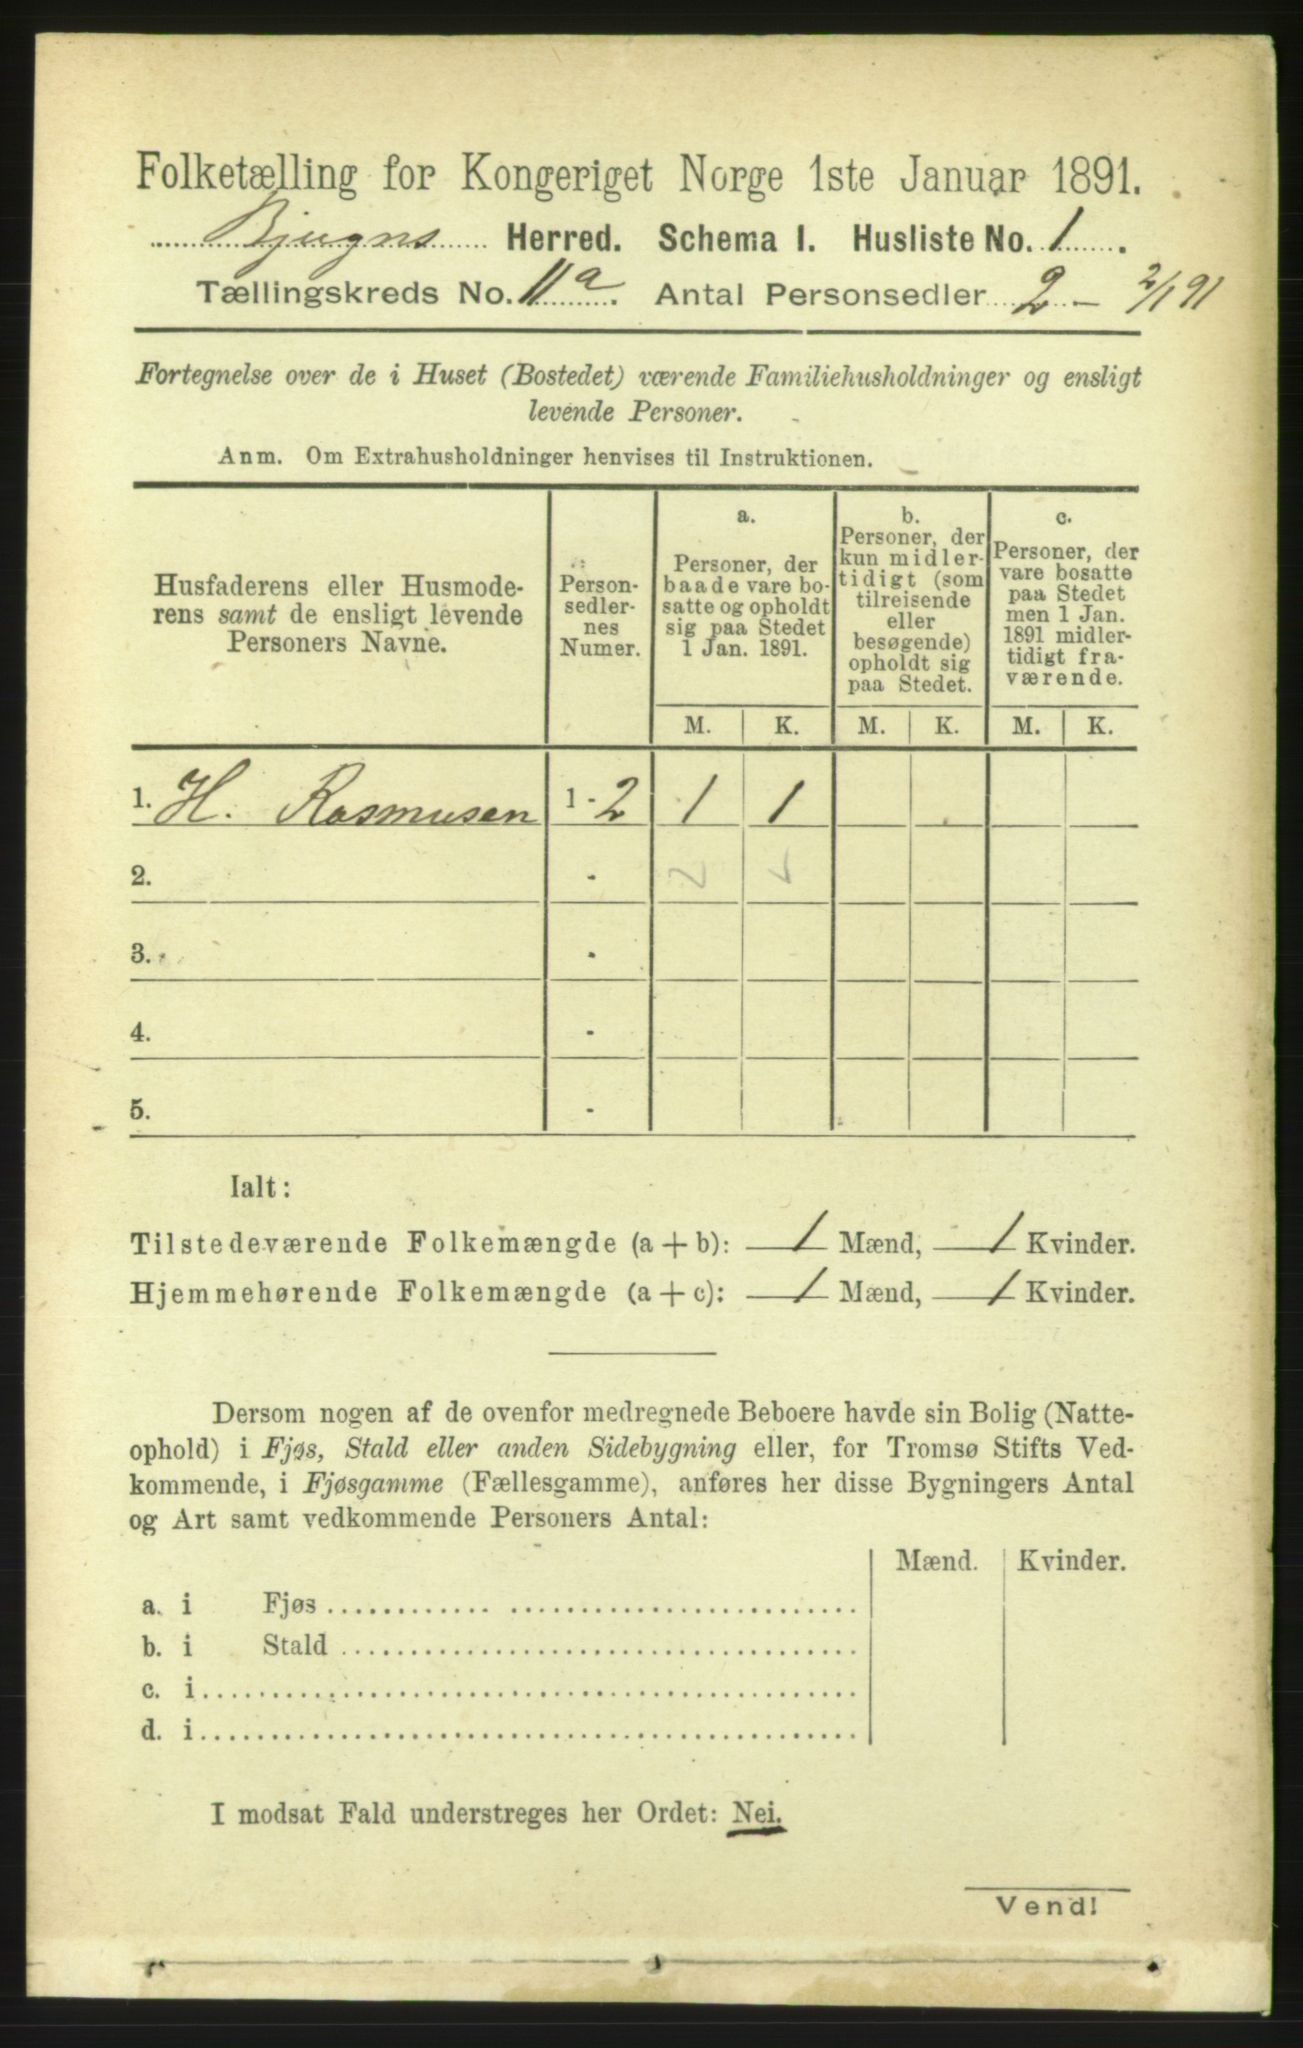 Folketælling for Kongeriget Norge 1ste Januar 1891.
Bjugns Herred. Schema I. Husliste No. 1.
Tællingskreds No. 11a. Antal Personsedler 2 - 2/1 91
Fortegnelse over de i Huset (Bostedet) værende Familiehusholdninger og ensligt
levende Personer.
Anm. Om Extrahusholdninger henvises til Instruktionen.
Husfaderens eller Husmode-
rens samt de ensligt levende
Personers Navne.
Person-
sedler-
nes
Numer.
a.
Personer, der
baade vare bo-
satte og opholdt
sig paa Stedet
1 Jan. 1891.
b.
Personer, der
kun midler-
tidigt (som
tilreisende
eller
besøgende)
opholdt sig
paa Stedet.
c.
Personer, der
vare bosatte
paa Stedet
men 1 Jan.
1891 midler-
tidigt fra-
værende.
M. K. M. K. M. K.
1. H. Rasmusen 1 - 2 1 1
2. -
3. -
4. -
5. -
Ialt:
Tilstedeværende Folkemængde (a + b): 1 Mænd, 1 Kvinder.
Hjemmehørende Folkemængde (a + c): 1 Mænd, 1 Kvinder.
Dersom nogen af de ovenfor medregnede Beboere havde sin Bolig (Natte-
ophold) i Fjøs, Stald eller anden Sidebygning eller, for Tromsø Stifts Ved-
kommende, i Fjøsgamme (Fællesgamme), anføres her disse Bygningers Antal
og Art samt vedkommende Personers Antal:
Mænd. Kvinder.
a. i Fjøs
b. i Stald
c. i
d. i
I modsat Fald understreges her Ordet: Nei.
Vend!